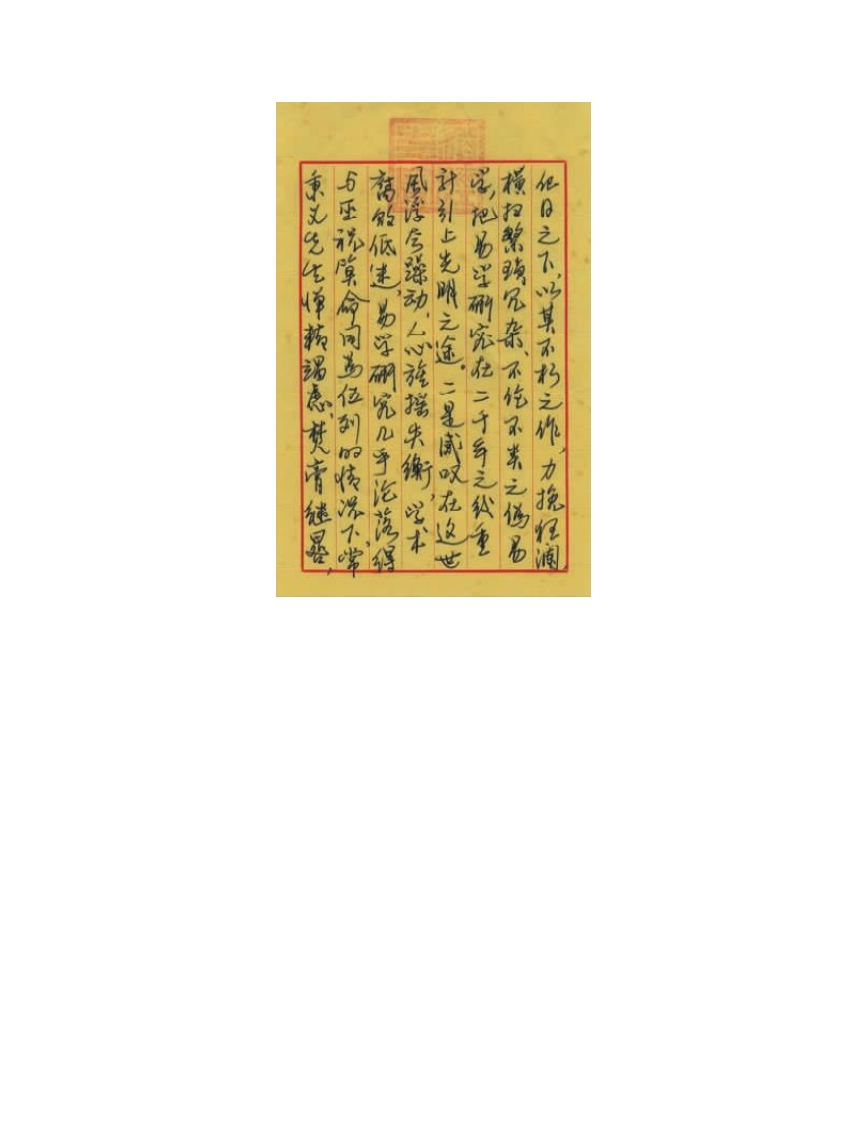 化日之下，以其不朽之作，力挽狂澜，
横扫繁琐冗杂、不伦不类之伪易
学，把易学研究在二千年之后重
新引上光明之途。二是感叹在这世
風浮夸躁动，人心旌摇失衡，学术
腐败低迷，易学研究几乎沦落得
与巫祝算命同为伍列的情况下，常
秉义先生惮精竭虑，焚膏继晷，